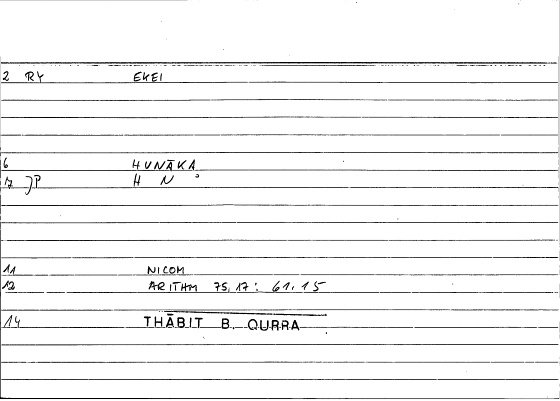 2 RY EKEI
6 HUNĀKA
7 JP H N °
11 NICOM
12 ARITHM 75,17: 61.15
14 THĀBIT B. QURRA